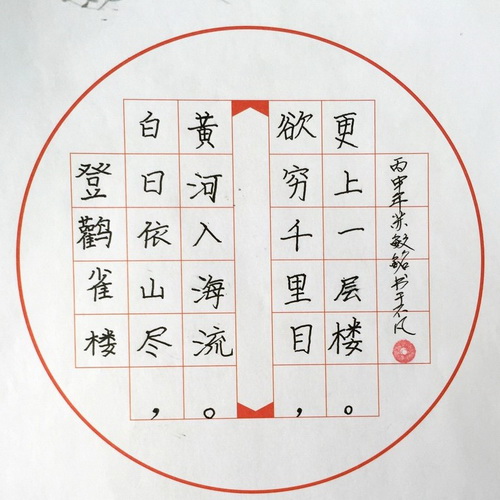 登鹳雀楼
白日依山尽，
黄河入海流。
欲穷千里目，
更上一层楼。
丙申年敏铭书于